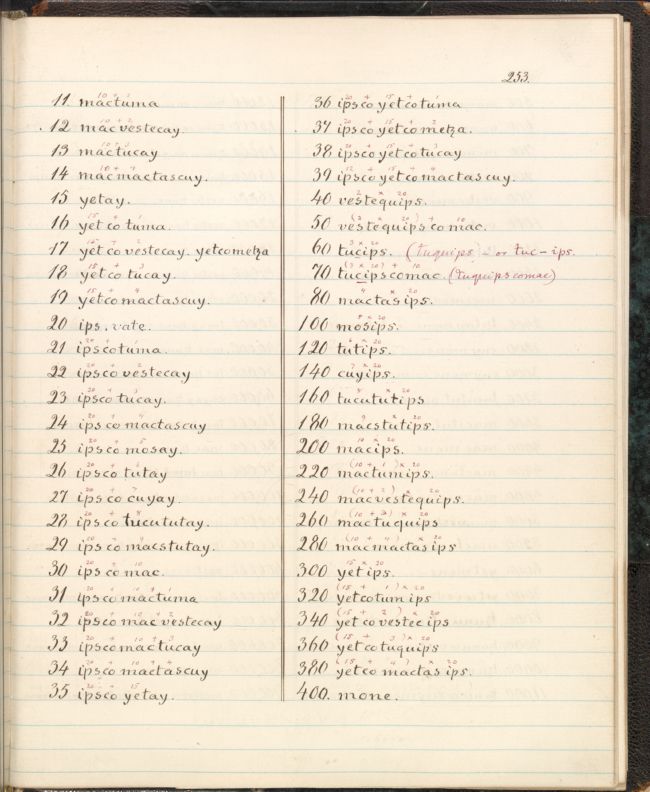 253.
11. mactuma
12 macvestecay.
13 mactucay
14 macmactascuy.
15 yetay.
16 yetco tuma.
17 yetco vestecay. yetcometʒa
18 yetco tucay.
19 yetcomactascuy.
20 ips. vate.
21 ipscotuma.
22 ipsco vestecay
23 ipsco tucay.
24 ipsco mactascuy
25 ipsco mosay.
26 ipsco tutay
27 ipsco cuyay.
28 ipsco tucututay.
29 ipsco macstutay.
30 ipsco mac.
31 ipsco mactuma
32 ipsco macvestecay
33 ipscomactucay
34 ipsco mactascuy
35 ipsco yetay.
36 ipsco yetcotuma
37 ipsco yetcometʒa.
38 ipsco yetcotucay
39 ipsco yetco mactascuy.
40 vestequips.
50 vestequipscomac.
60 tucips. (tuquips) 2 or tuc-ips.
70 tucipscomac. (tuquipscomac)
80 mactasips.
100 mosips.
120 tutips.
140 cuyips.
160 tucututips
180 macstutips.
200 macips.
220 mactumips.
240 macvestequips.
260 mactuquips
280 macmactasips
300 yetips.
320 yetcotumips
340 yetcovestecips
360 yetcotuquips
380 yetco mactasips.
400. mone.